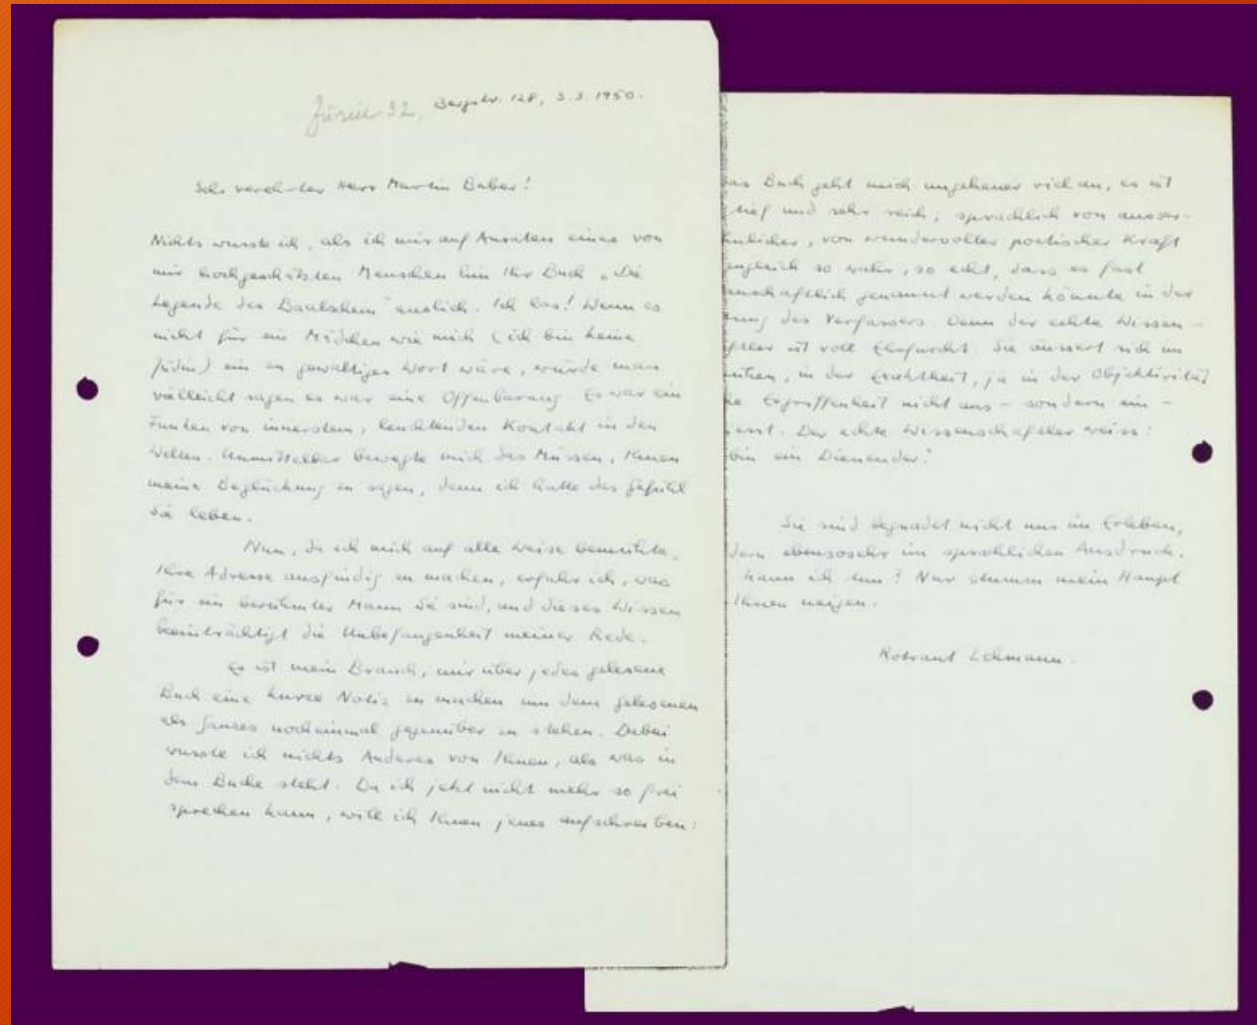 Zürich 32, Bergstr. 128, 3.3.1950.
Sehr verehrter Herr Martin Buber!
Nichts wusste ich, als ich mir auf Anraten eines von
mir hochgeschätzten Menschen hin Ihr Buch „Die
Legende des Baalschem" auslieh. Ich las! Wenn es
nicht für ein Mädchen wie mich (ich bin keine
Jüdin) ein zu gewaltiges Wort wäre, würde man
vielleicht sagen es war eine Offenbarung. Es war ein
Funken von innerstem, leuchtenden Kontakt in den
Welten. Unmittelbar bewegte mich das Müssen, Ihnen
meine Beglückung zu sagen, denn ich hatte das Gefühl
Sie leben.
Nun, da ich mich auf alle Weise bemühte,
Ihre Adresse ausfindig zu machen, erfuhr ich, was
für ein berühmter Mann Sie sind, und dieses Wissen
beeinträchtigt die Unbefangenheit meiner Rede.
Es ist mein Brauch, mir über jedes gelesene
Buch eine kurze Notiz zu machen um dem gelesenen
als Ganzes nocheinmal gegenüber zu stehen. Dabei
wusste ich nichts Anderes von Ihnen, als was in
dem Buche steht. Da ich jetzt nicht mehr so frei
sprechen kann, will ich Ihnen jenes aufschreiben:
das Buch geht mich ungeheuer viel an, es ist
tief und sehr reich; sprachlich von ausser-
licher, von wundervoller poetischer Kraft
zugleich so wahr, so echt, dass es fast
schaftlich genannt werden könnte in der
des Verfassers. Denn der echte Wissen-
ftler ist voll Ehrfurcht. Sie äussert sich im
in der Exaktheit, ja in der Objektivität
Ergriffenheit nicht aus - sondern ein -
Der echte Wissenschaftler weiss:
bin ein Dienender."
Sie sind begnadet nicht nur im Erleben,
dern ebensosehr im sprachlichen Ausdruck.
kann ich tun? Nur stumm mein Haupt
Ihnen neigen.
Rotraut Lehmann.